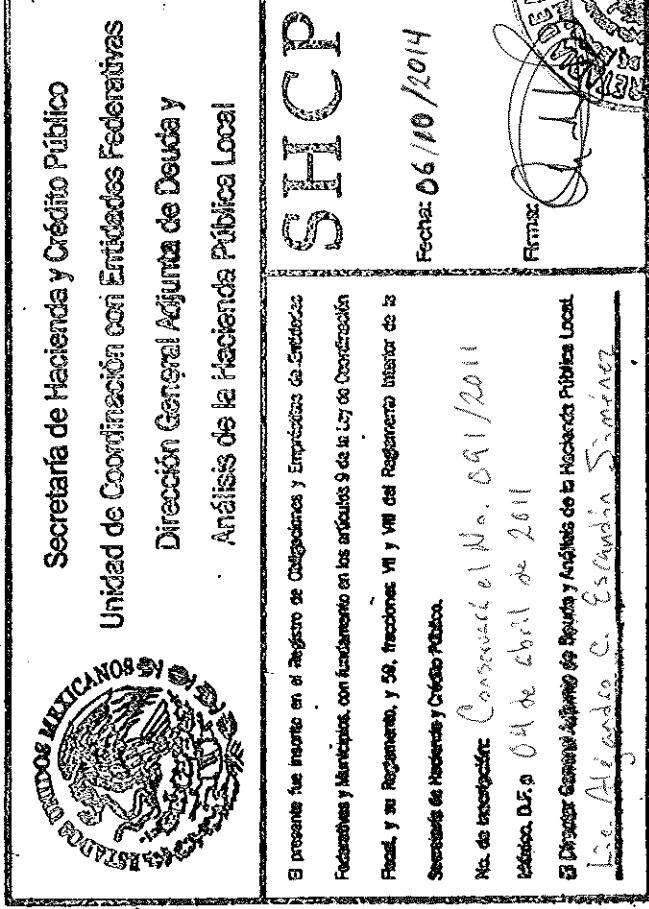 ESTADOS UNIDOS MEXICANOS
Secretaría de Hacienda y Crédito Público
Unidad de Coordinación con Entidades Federativas
Dirección General Adjunta de Deuda y
Análisis de la Hacienda Pública Local
El presente fue inscrito en el Registro de Obligaciones y Empréstitos de Entidades
Federativas y Municipios, con fundamento en los artículos 9 de la Ley de Coordinación
Fiscal, y su Reglamento, y 56, fracciones VII y VIII del Reglamento Interior de la
Secretaría de Hacienda y Crédito Público.
No. de Inscripción: Conservará el No. 091/2011
México, D.F. a 04 de abril de 2011
El Director General Adjunto de Deuda y Análisis de la Hacienda Pública Local.
Lic. Alejandro C. Escandón Jiménez
SHCP
Fecha: 06/10/2014
Firma: